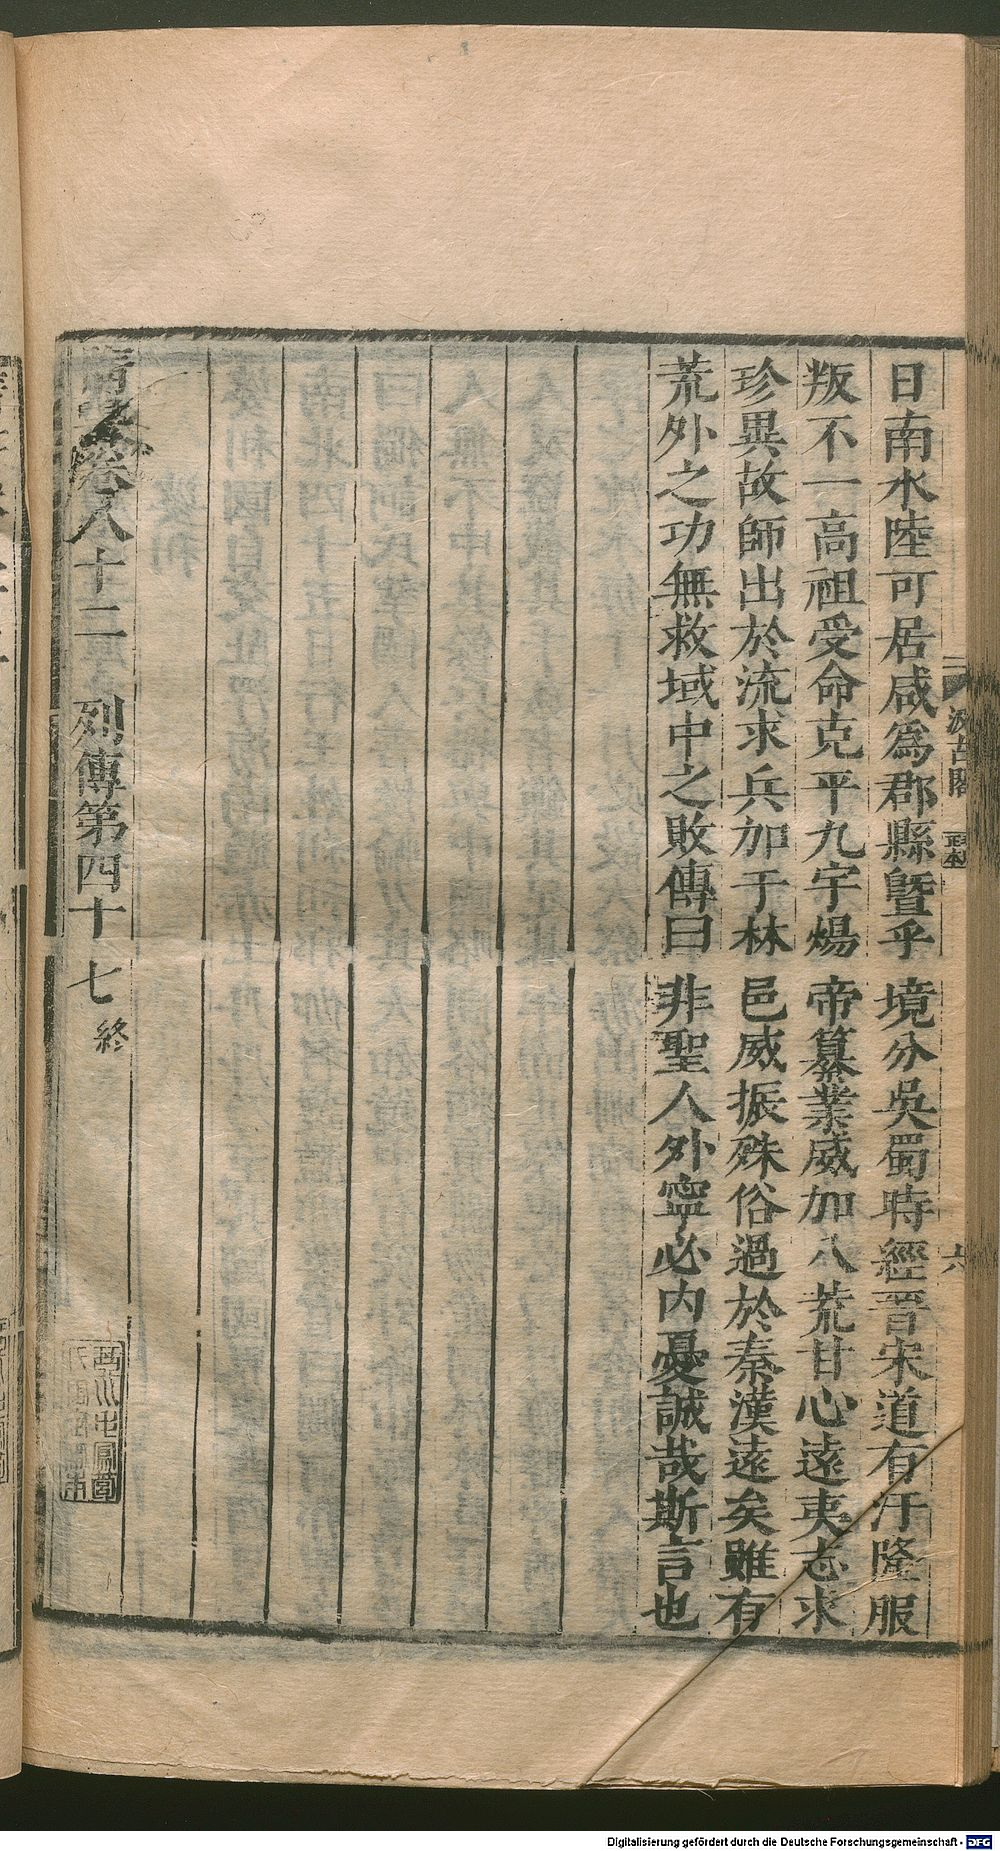 汲古閣
毛氏
六
日南水陸可居咸為郡縣曁乎境分吳蜀時經晉宋道有汙隆服
叛不一高祖受命克平九宇煬帝纂業威加八荒甘心遠夷志求
珍異故師出於流求兵加于林邑威振殊俗過於秦漢遠矣雖有
荒外之功無救域中之敗傳曰非聖人外寧必内憂誠哉斯言也
隋書卷八十二 列傳第四十七 終
Digitalisierung gefördert durch die Deutsche Forschungsgemeinschaft - DFG